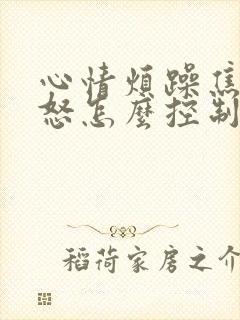 心情煩躁焦
怒怎麼控制
稻荷家房之介